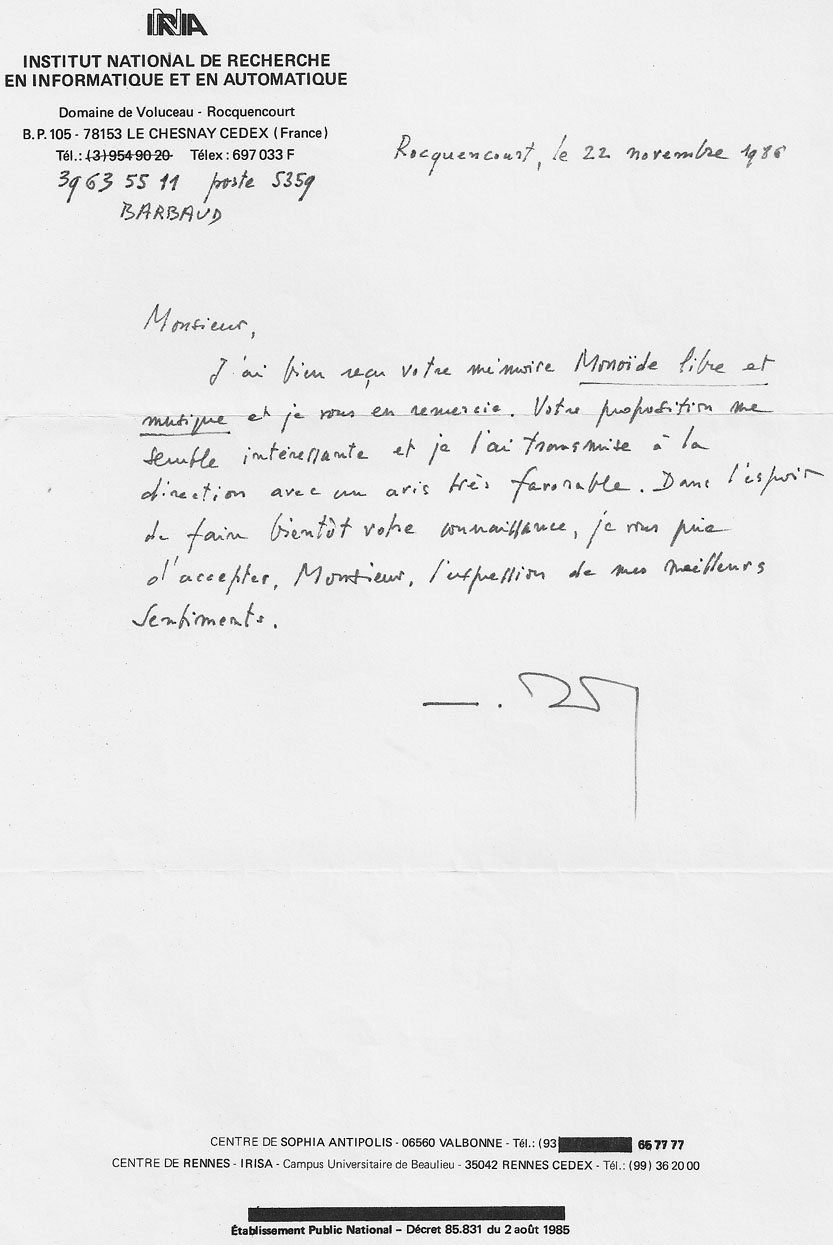 INRIA
INSTITUT NATIONAL DE RECHERCHE
EN INFORMATIQUE ET EN AUTOMATIQUE
Domaine de Voluceau - Rocquencourt
B.P. 105 - 78153 LE CHESNAY CEDEX (France)
Tél.: (3) 954 90 20 Télex : 697 033 F
39 63 55 11 poste 5359
BARBAUD
Rocquencourt, le 22 novembre 1986
Monsieur,
J'ai bien reçu votre mémoire Monoïde libre et
musique et je vous en remercie. Votre proposition me
semble intéressante et je l'ai transmise à la
direction avec un avis très favorable. Dans l'espoir
de faire bientôt votre connaissance, je vous prie
d'accepter, Monsieur, l'expression de mes meilleurs
sentiments.
CENTRE DE SOPHIA ANTIPOLIS - 06560 VALBONNE - Tél.: (93 65 77 77
CENTRE DE RENNES - IRISA - Campus Universitaire de Beaulieu - 35042 RENNES CEDEX - Tél.: (99) 36 20 00
Établissement Public National – Décret 85.831 du 2 août 1985